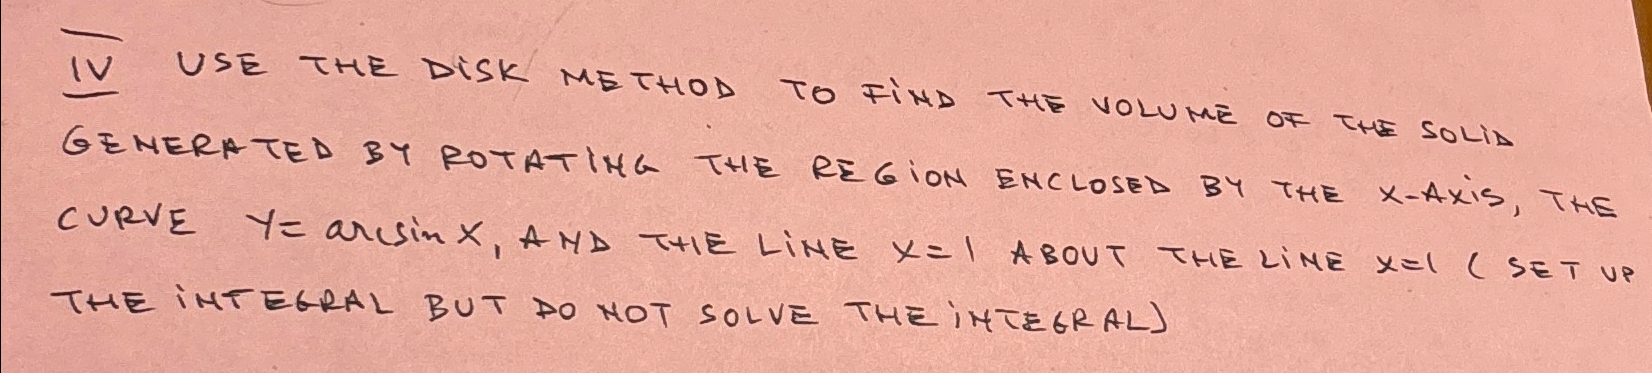 IV USE THE DISK METHOD TO FIND THE VOLUME OF THE SOLID
GENERATED BY ROTATING THE REGION ENCLOSED BY THE X-AXIS, THE
CURVE Y= arcsin X, AND THE LINE X=1 ABOUT THE LINE X=1 ( SET UP
THE INTEGRAL BUT DO NOT SOLVE THE INTEGRAL)